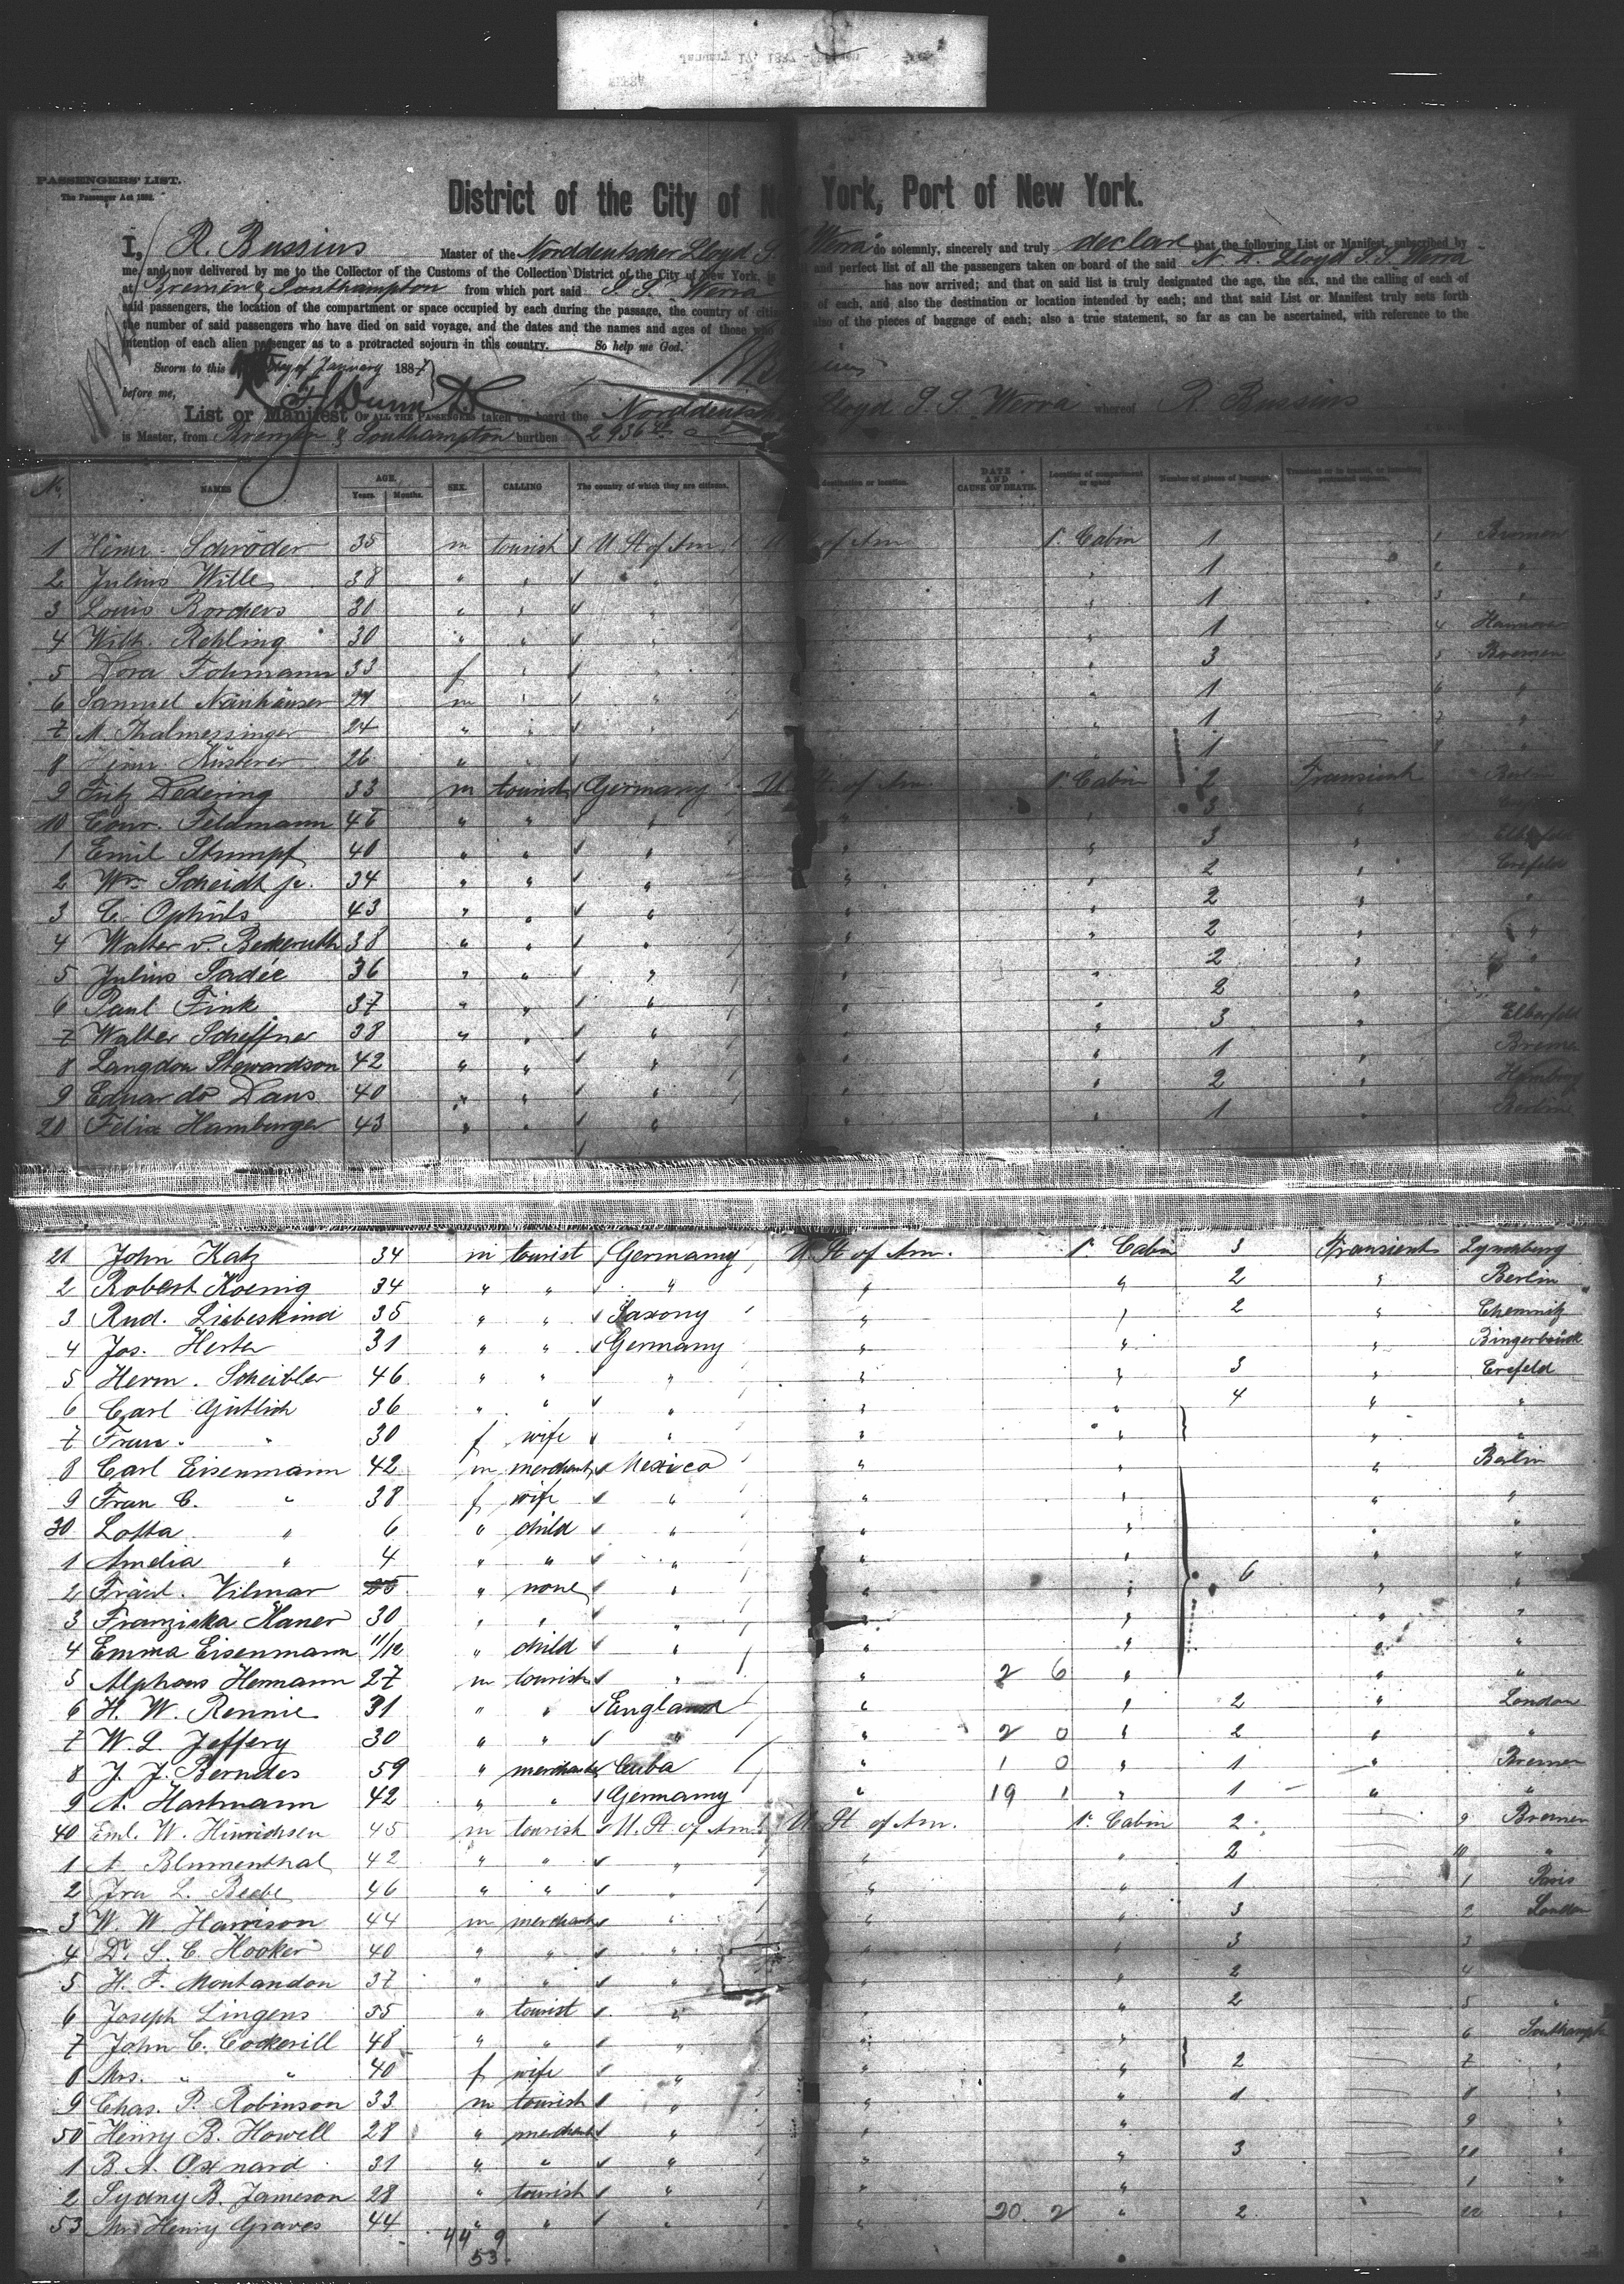 PASSENGERS' LIST.
The Passenger Act 1882.
District of the City of New York, Port of New York.
I, R. Bussius Master of the Norddeutscher Lloyd S. "Werra" do solemnly, sincerely and truly declare that the following List or Manifest, subscribed by
me, and now delivered by me to the Collector of the Customs of the Collection District of the City of New York, is and perfect list of all the passengers taken on board of the said N. D. Lloyd S.S. Werra
at Bremen & Southampton from which port said S. S. Werra has now arrived; and that on said list is truly designated the age, the sex, and the calling of each of
said passengers, the location of the compartment or space occupied by each during the passage, the country of of each, and also the destination or location intended by each; and that said List or Manifest truly sets forth
the number of said passengers who have died on said voyage, and the dates and the names and ages of those who also of the pieces of baggage of each; also a true statement, so far as can be ascertained, with reference to the
intention of each alien passenger as to a protracted sojourn in this country. So help me God.
Sworn to this day of January 1887
before me,
List or Manifest OF ALL THE PASSENGERS taken on board the Norddeutsch Lloyd S S Werra whereof R Bussius
is Master, from Bremen & Southampton burthen 2936
No. NAMES AGE. Years. Months. SEX. CALLING The country of which they are citizens. destination or location. DATE AND CAUSE OF DEATH. Location of compartment or space Number of pieces of baggage.
1 Heinr. Schröder 35 m tourist U St of Am. U of Am 1. Cabin 1 1 Bremen
2 Julius Wille 38 " " " " 1 2 "
3 Louis Borchers 30 " " " " 1 3 "
4 Wilh. Rehling 30 " " " " 1 4 Hannover
5 Dora Fohrmann 33 f " " " 3 5 Bremen
6 Samuel Nainhäuser 27 m " " " 1 6 "
7 M. Thalmessinger 24 " " " " 1 7 "
8 Heinr. Küsterer 26 " " " 1 8 "
9 Fritz Dedering 33 m tourist Germany U. St. of Am. 1. Cabin 2 Transient Berlin
10 Conr. Feldmann 46 " " " " " 3 "
1 Emil Stumpf 40 " " " " " 3 " Elberfeld
2 Wm Scheidt jr. 34 " " " " " 2 " Crefeld
3 C. Ophüls 43 " " " " " 2 " "
4 Walter v. Beckerath 38 " " " " " 2 " "
5 Julius Sadée 36 " " " " " 2 "
6 Paul Fink 37 " " " " " 2 " "
7 Walter Scheffner 38 " " " " " 3 " Elberfeld
8 Langdon Stewardson 42 " " " " " 1 " Bremen
9 Eduardo Dans 40 " " " " " 2 " Hamburg
20 Felix Hamburger 43 " " " " " 1 " Berlin
21 John Katz 34 m tourist Germany U. St of Am. 1. Cabin 3 Transient Lynchburg
2 Robert Koenig 34 " " " " " 2 " Berlin
3 Rud. Liebeskind 35 " " Saxony " " 2 " Chemnitz
4 Jos. Herter 31 " " Germany " " " Bingerbrück
5 Herm. Scheibler 46 " " " " " 3 " Crefeld
6 Carl Gütlich 36 " " " " " 4 " "
7 Frau " 30 f wife " " " " "
8 Carl Eisenmann 42 m merchant Mexico " " " Berlin
9 Frau C. " 38 f wife " " " " "
30 Lotta " 6 " child " " " " "
1 Amelia " 4 " " " " " " "
2 Fräul. Vilmar 25 " none " " " 6 " "
3 Franziska Haner 30 " " " " " " "
4 Emma Eisenmann 11/12 " child " " " " "
5 Alphons Hermann 27 m tourist " " 2 6 " " "
6 H. W. Rennie 31 " " England " " 2 " London
7 W. L. Jeffery 30 " " " " 2 0 " 2 " "
8 J. J. Berndes 59 " merchant Cuba " 1 0 " 1 " Bremen
9 A. Hartmann 42 " " Germany " 19 1 " 1 " "
40 Eml. W. Hinrichsen 45 m tourist U. St of Am. U St of Am. 1. Cabin 2 9 Bremen
1 A. Blumenthal 42 " " " " " 2 10 "
2 Ira L. Beebe 46 " " " " " 1 1 Paris
3 W. W Harrison 44 m merchant " " " 3 2 London
4 Dr. S. C. Hooker 40 " " " " " 3 3
5 H. F. Montandon 37 " " " " " 2 4
6 Joseph Lingens 35 " tourist " " " 2 5 "
7 John C. Cockerill 48 " " " " " 6 Southampt
8 Mrs. " " 40 f wife " " " 2 7 "
9 Chas. P. Robinson 33 m tourist " " " 1 8 "
50 Henry B. Howell 28 " merchant " " " 9 "
1 B. A. Oxnard 31 " " " " " 3 20 "
2 Sydny B. Jameson 28 " tourist " " " 1 "
53 Mr Henry Graves 44 " " " " 20. 2 " 2 22 "
44 9
53